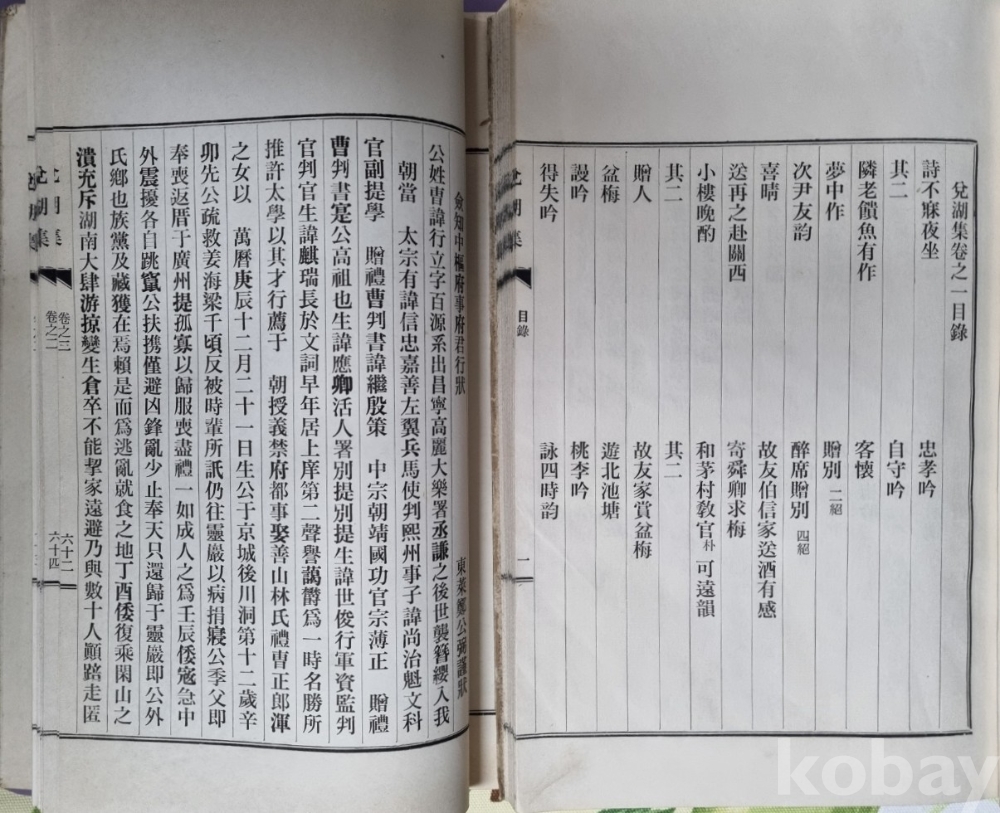 兌湖集卷之一目錄
詩不寐夜坐 忠孝吟
其二 自守吟
隣老饋魚有作 客懷
夢中作 贈別 二絕
次尹友韵 醉席贈別 四絕
喜晴 故友伯信家送酒有感
送再之赴關西 寄舜卿求梅
小樓晚酌 和茅村敎官 朴 可遠韻
其二 其二
贈人 故友家賞盆梅
盆梅 遊北池塘
謾吟 桃李吟
得失吟 詠四時韵
兌湖集 目錄 一
僉知中樞府事府君行狀 東萊鄭公弼謹狀
公姓曺諱行立字百源系出昌寧高麗大樂署丞謙之後世襲簪纓入我
朝當 太宗有諱信忠嘉善左翼兵馬使判熙州事子諱尚治魁文科
官副提學 贈禮曹判書諱繼殷策 中宗朝靖國功官宗薄正 贈禮
曹判書寔公高祖也生諱應卿活人署別提別提生諱世俊行軍資監判
官判官生諱麒瑞長於文詞早年居上庠第二聲譽藹欝爲一時名勝所
推許太學以其才行薦于 朝授義禁府都事娶善山林氏禮曺正郎渾
之女以 萬曆庚辰十二月二十一日生公于京城後川洞第十二歲辛
卯先公疏救姜海梁千頃反被時輩所詆仍往靈嚴以病捐寢公季父即
奉喪返厝于廣州提孤寡以歸服喪盡禮一如成人之爲壬辰倭寇急中
外震擾各自跳竄公扶携僅避凶鋒亂少止奉天只還歸于靈嚴即公外
氏鄉也族黨及藏獲在焉賴是而爲逃亂就食之地丁酉倭復乘閑山之
潰充斥湖南大肆游掠變生倉卒不能挈家遠避乃與數十人顚踣走匿
兌湖集 卷之三 六十二
兌湖集 卷之二 六十四